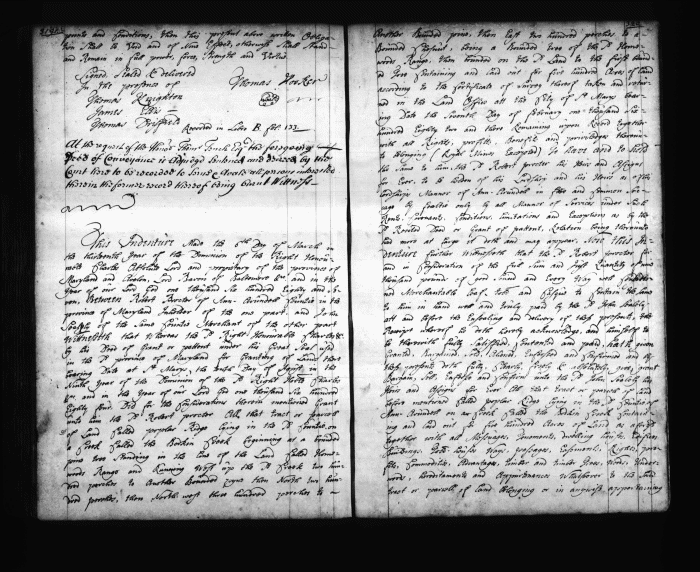 ments and Conditions, then this present above written Obliga-
tion Shall be Void and of None Effect, otherwise Shall Stand
and Remain in full power, force, Strength and Virtue
Signed Sealed & delivered
In the presence of Thomas Hooker
Thomas Knighton
James
Thomas
Recorded in Liber B. fol 133
At the request of the foregoing
Deed of Conveyance is adjudged and by the
Court here to be recorded to
therein the former record thereof being burnt Witness
This Indenture Made the 6th Day of March in
the thirteenth Year of the Dominion of the Right Honou-
rable Charles Absolute Lord and proprietary of the provinces of
Maryland and Avalon, Lord Baron of Baltemore &c and in the
Year of our Lord God one thousand Six hundred Eighty and
Between Robert Procter of Ann Arrundell County in the
province of Maryland of the one part and John
of the Same County Merchant of the other part
Witnesseth that Whereas the Right Honourable Charles &c
by the Deed of Grant or patent under the Great Seal used
in the Sd province of Maryland for Granting of Land there
bearing Date at St Marys, the Day of in the
Ninth Year of the Dominion of the Sd Right Honble Charles
&c and in the Year of our Lord one thousand Six hundred
Eighty four, Did for the Consideration therein mentioned Grant
unto him the Sd Robert procter All that tract or parcel
of Land Called poplar Ridge lying in the Sd County on
a Creek Called the Bodkin Creek Beginning at a bounded
pine Standing in the line of the Land Called Home-
woods Range and Running West by the Sd Creek two hun-
dred perches to Another Bounded pyne then North two hun-
dred perches, then North west three hundred perches to
Another Bounded pine, then East two hundred perches to a
Bounded Chesnut, being a Bounded tree of the Sd Home-
woods Range, then bounded on the Sd Land to the first bound-
ed tree Containing and laid out for five hundred Acres of land
according to the Certificate of Survey thereof taken and return-
ed in the Land Office at the City of St Marys bear-
ing Date the Seventh Day of February one thousand Six
hundred Eighty two and there Remaining upon Record together
with all Rights, profits, benefits and priviledges thereunto
belonging (Royal Mines Excepted) to have and to hold
the Same to him the Sd Robert procter his Heirs and Assigns
for Ever, to be holden of the Lordship and his Heirs as of his
Mannor of Ann Arrundell in free and Common Soc-
cage by fealty only for all Manner of Services under such
Rents, Covenants, Conditions limitations and Exceptions as by the
Sd Recited Deed or Grant of patent, Relation being thereunto
had more at large it doth and may appear. Now this In-
denture further Witnesseth that the Sd Robert procter for
and in Consideration of the full Sum and Just Quantity of
thousand pounds of good Sound and Every Way well
and Merchantable leaf tob and Caskes to Contain the Same
to him in hand well and truly paid by the Sd John
att and before the Ensealing and delivery of these presents, the
Receipt whereof he doth hereby acknowledge, and himself to
be therewith fully Satisfied, Contented and paid, hath given
Granted, Bargained, Sold, Aliened, Enfeoffed and Confirmed and by
these presents doth fully, Clearly, freely & absolutely give, grant
Bargain, Sell, Enfeoffe and Confirm unto the Sd John his
Heirs and Assigns for Ever all the Said tract or parcel of Land
before mentioned Called poplar Ridge lying in the Sd County of
Ann Arrundell on a Creek Called the Bodkin Creek Contain-
ing and laid out for five hundred Acres of Land as aforesd
together with all Messuages, Tenements, dwelling houses, Edifices
Buildings, Outt houses Ways, passages, Easments, Rights, prof-
fits, Commodities, Advantages, timber and timber trees, Woods, Under-
woods, Hereditaments and Appurtenances Whatsoever to the Said
tract or parcell of land belonging or in anywise appertaining